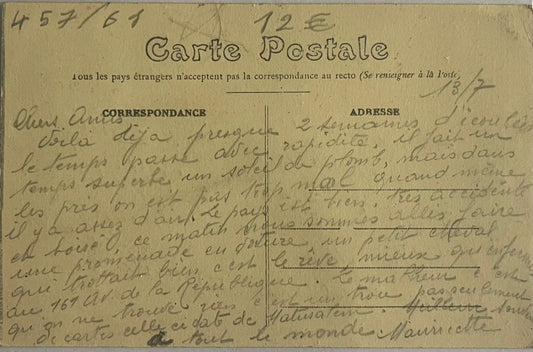 457/61
12€
Carte Postale
Tous les pays étrangers n'acceptent pas la correspondance au recto (Se renseigner à la Poste)
13/7
CORRESPONDANCE
ADRESSE
Chers Amis
Voilà déja presque 2 semaines d'écoulées
le temps passe avec rapidité, il fait un
temps superbe un soleil de plomb, mais dans
les près on est pas trop mal quand même
il y a assez d'air. Le pays est bien, très accidenté
et boisé, ce matin nous sommes allés faire
une promenade en voiture un petit cheval
qui trottait bien c'est le rêve mieux que enfermé
au 161 Av. de la République. Le malheur c'est
qu'on ne trouve rien c'est un trou pas seulement
de cartes celle ci date de Matusalem. Meilleur
à tout le monde Mauricette